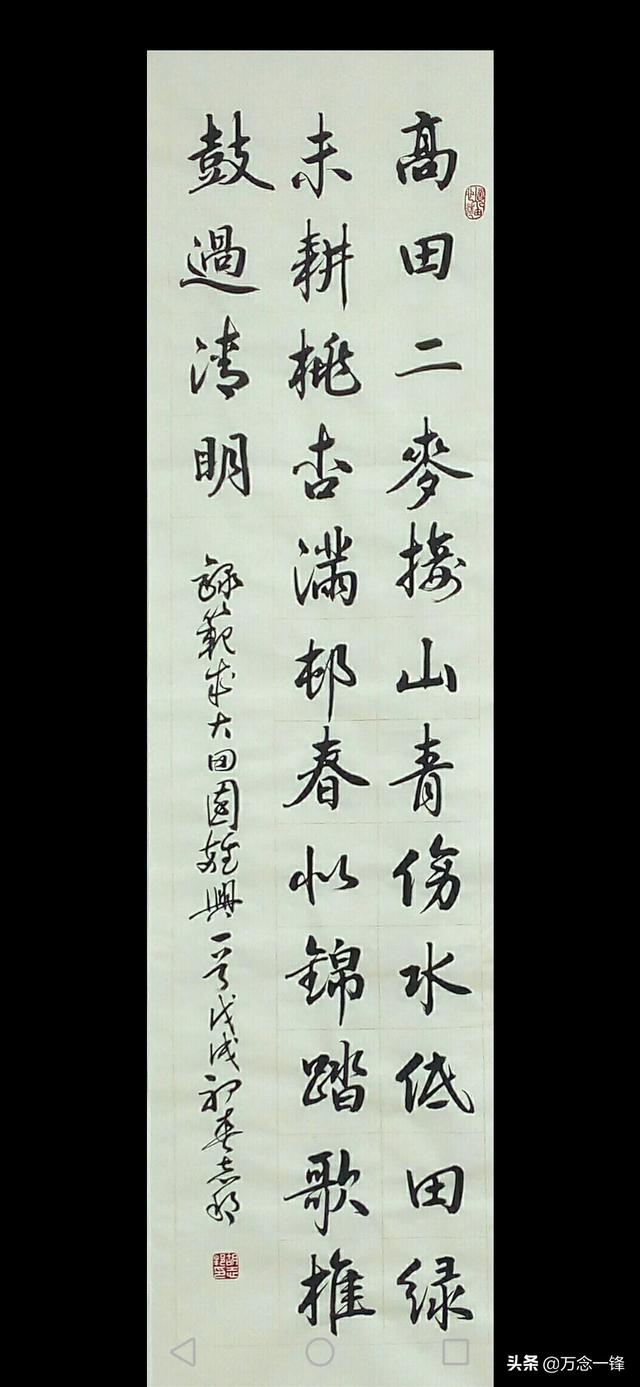 高田二麥接山青傍水低田綠
未耕桃杏滿邨春似錦踏歌椎
鼓過清明
錄範成大田園雜興一首戊戌初春志
头条 @万念一锋